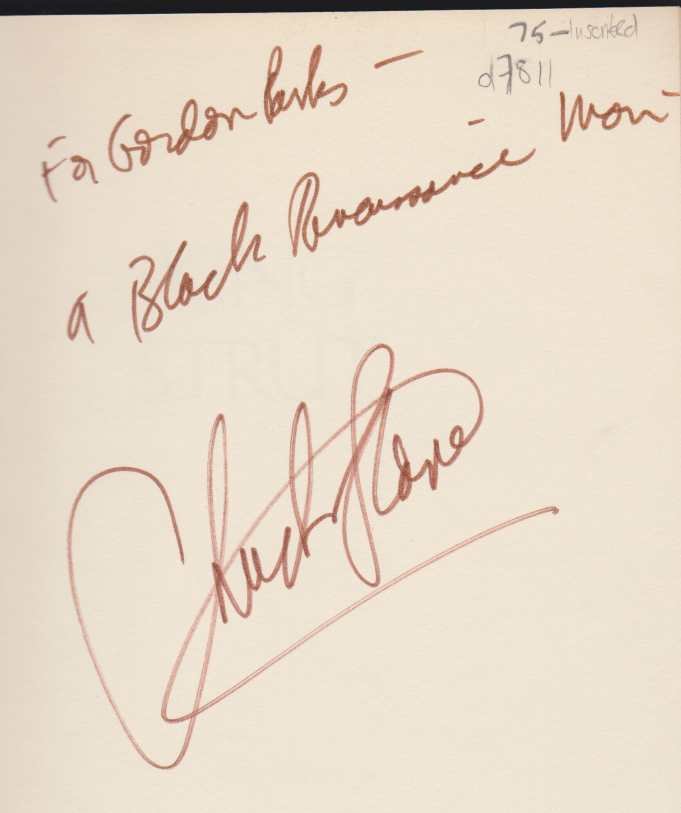 75-Inscribed
d7811
For Gordon Parks —
a Black Renaissance Man
Chuck Stone